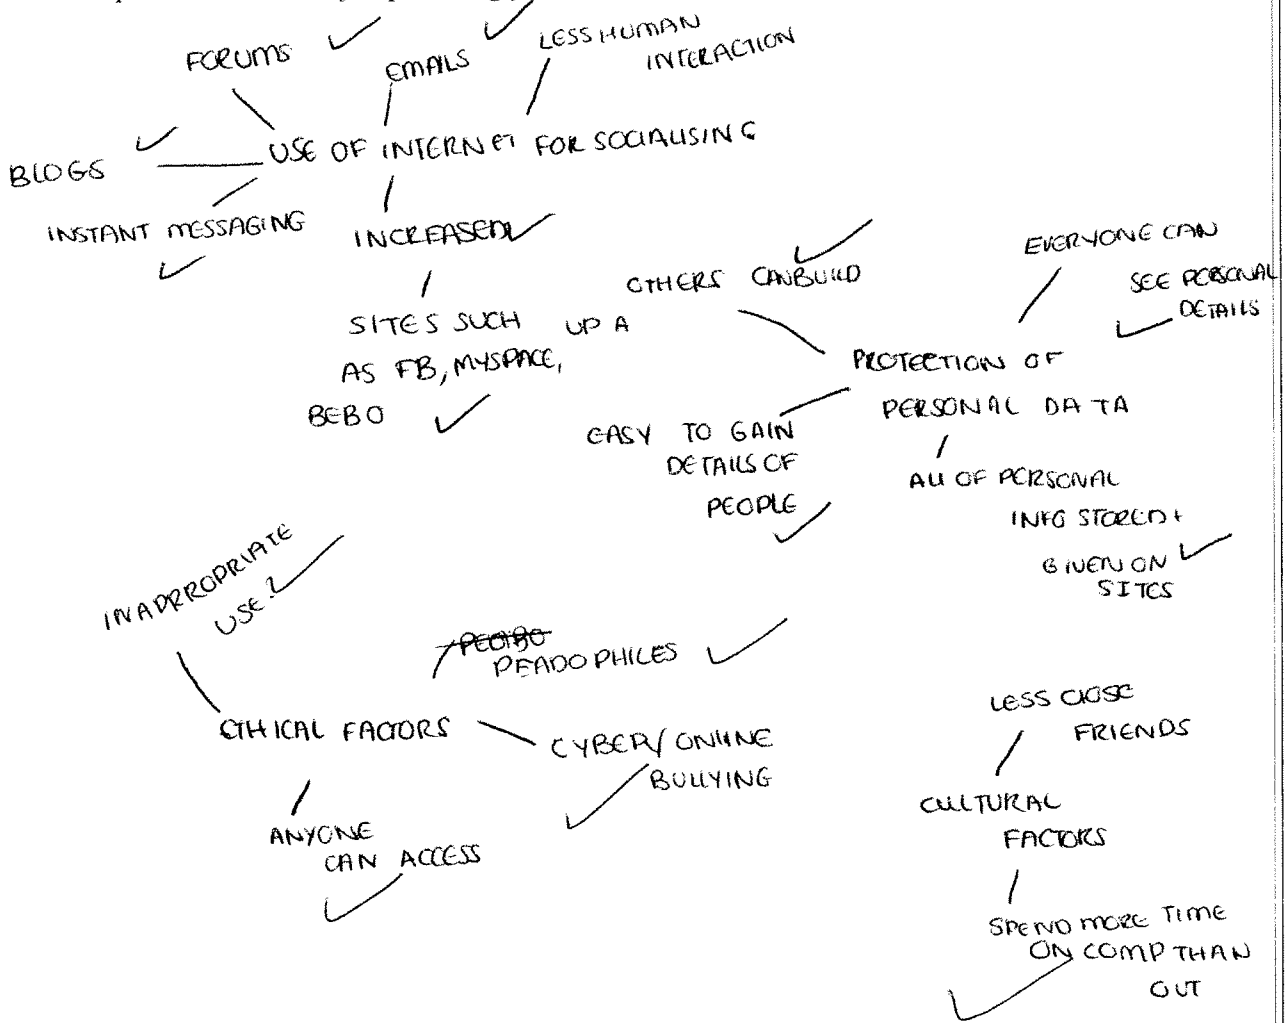 FORUMS
EMAILS
LESS HUMAN
INTERACTION
BLOGS
USE OF INTERNET FOR SOCIALISING
INSTANT MESSAGING
INCREASED
SITES SUCH
AS FB, MYSPACE,
BEBO
OTHERS CAN BUILD
UP A
EVERYONE CAN
SEE PERSONAL
DETAILS
PROTECTION OF
PERSONAL DATA
EASY TO GAIN
DETAILS OF
PEOPLE
ALL OF PERSONAL
INFO STORED +
GIVEN ON
SITES
INAPPROPRIATE
USE?
PEADOPHILES
ETHICAL FACTORS
CYBER/ONLINE
BULLYING
ANYONE
CAN ACCESS
LESS CLOSE
FRIENDS
CULTURAL
FACTORS
SPEND MORE TIME
ON COMP THAN
OUT